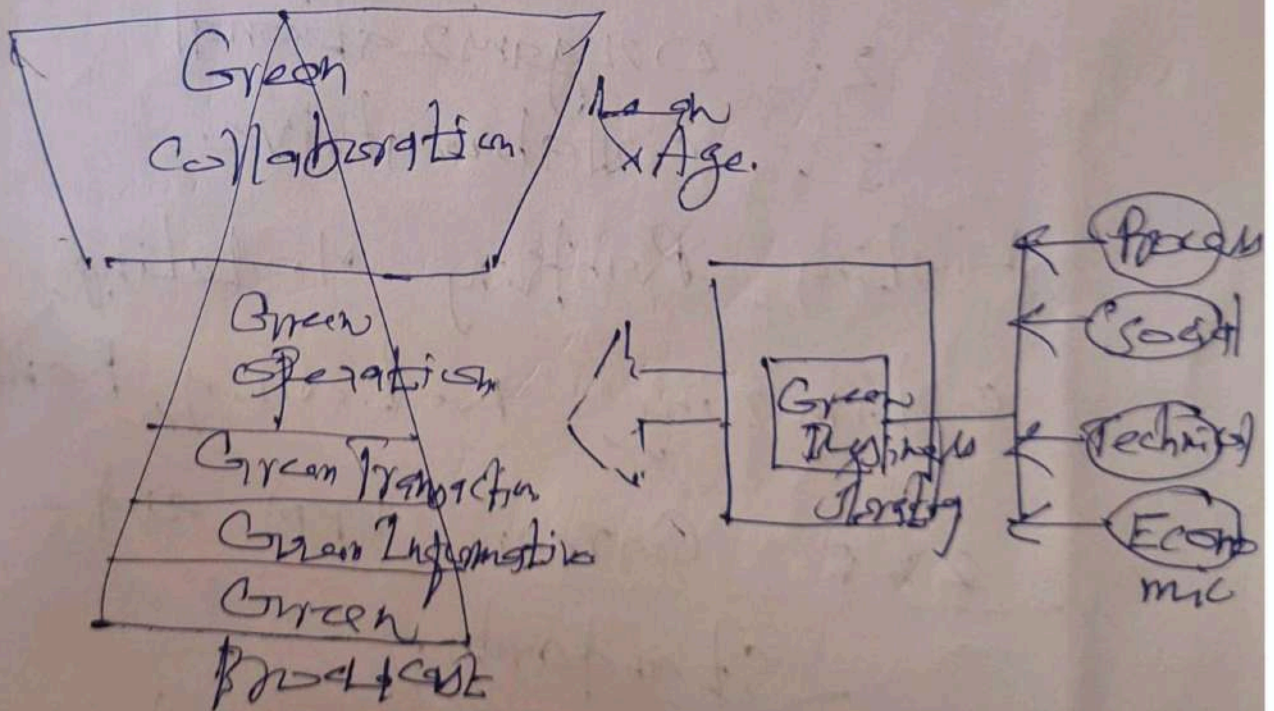 Green
Collaboration.
Lean
x Age.
Green
operation
Green Transaction
Green Informative
Green
Broadcast
Green
Business
Process
Social
Technical
Econo
mic